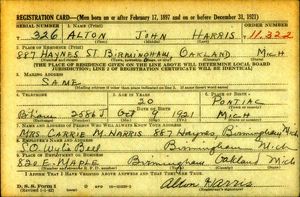 REGISTRATION CARD—(Men born on or after February 17, 1897 and on or before December 31, 1921)
SERIAL NUMBER 1. NAME (Print) ORDER NUMBER
S 326 ALTON JOHN HARRIS 11,322
2. PLACE OF RESIDENCE (Print)
887 HAYNES ST. BIRMINGHAM, OAKLAND MICH
[THE PLACE OF RESIDENCE GIVEN ON THE LINE ABOVE WILL DETERMINE LOCAL BOARD
JURISDICTION; LINE 2 OF REGISTRATION CERTIFICATE WILL BE IDENTICAL]
3. MAILING ADDRESS
SAME
4. TELEPHONE 5. AGE IN YEARS 6. PLACE OF BIRTH
20 PONTIAC
DATE OF BIRTH
B'ham 2586J Oct 1921 MICH
7. NAME AND ADDRESS OF PERSON WHO WILL ALWAYS KNOW YOUR ADDRESS
MRS CARRIE M. HARRIS 887 Haynes, Birmingham Mich
8. EMPLOYER'S NAME AND ADDRESS
Birmingham Mich
9. PLACE OF EMPLOYMENT OR BUSINESS
E. MAPLE Birmingham Oakland Mich
I AFFIRM THAT I HAVE VERIFIED ABOVE ANSWERS AND THAT THEY ARE TRUE.
D. S. S. Form 1 Alton Harris